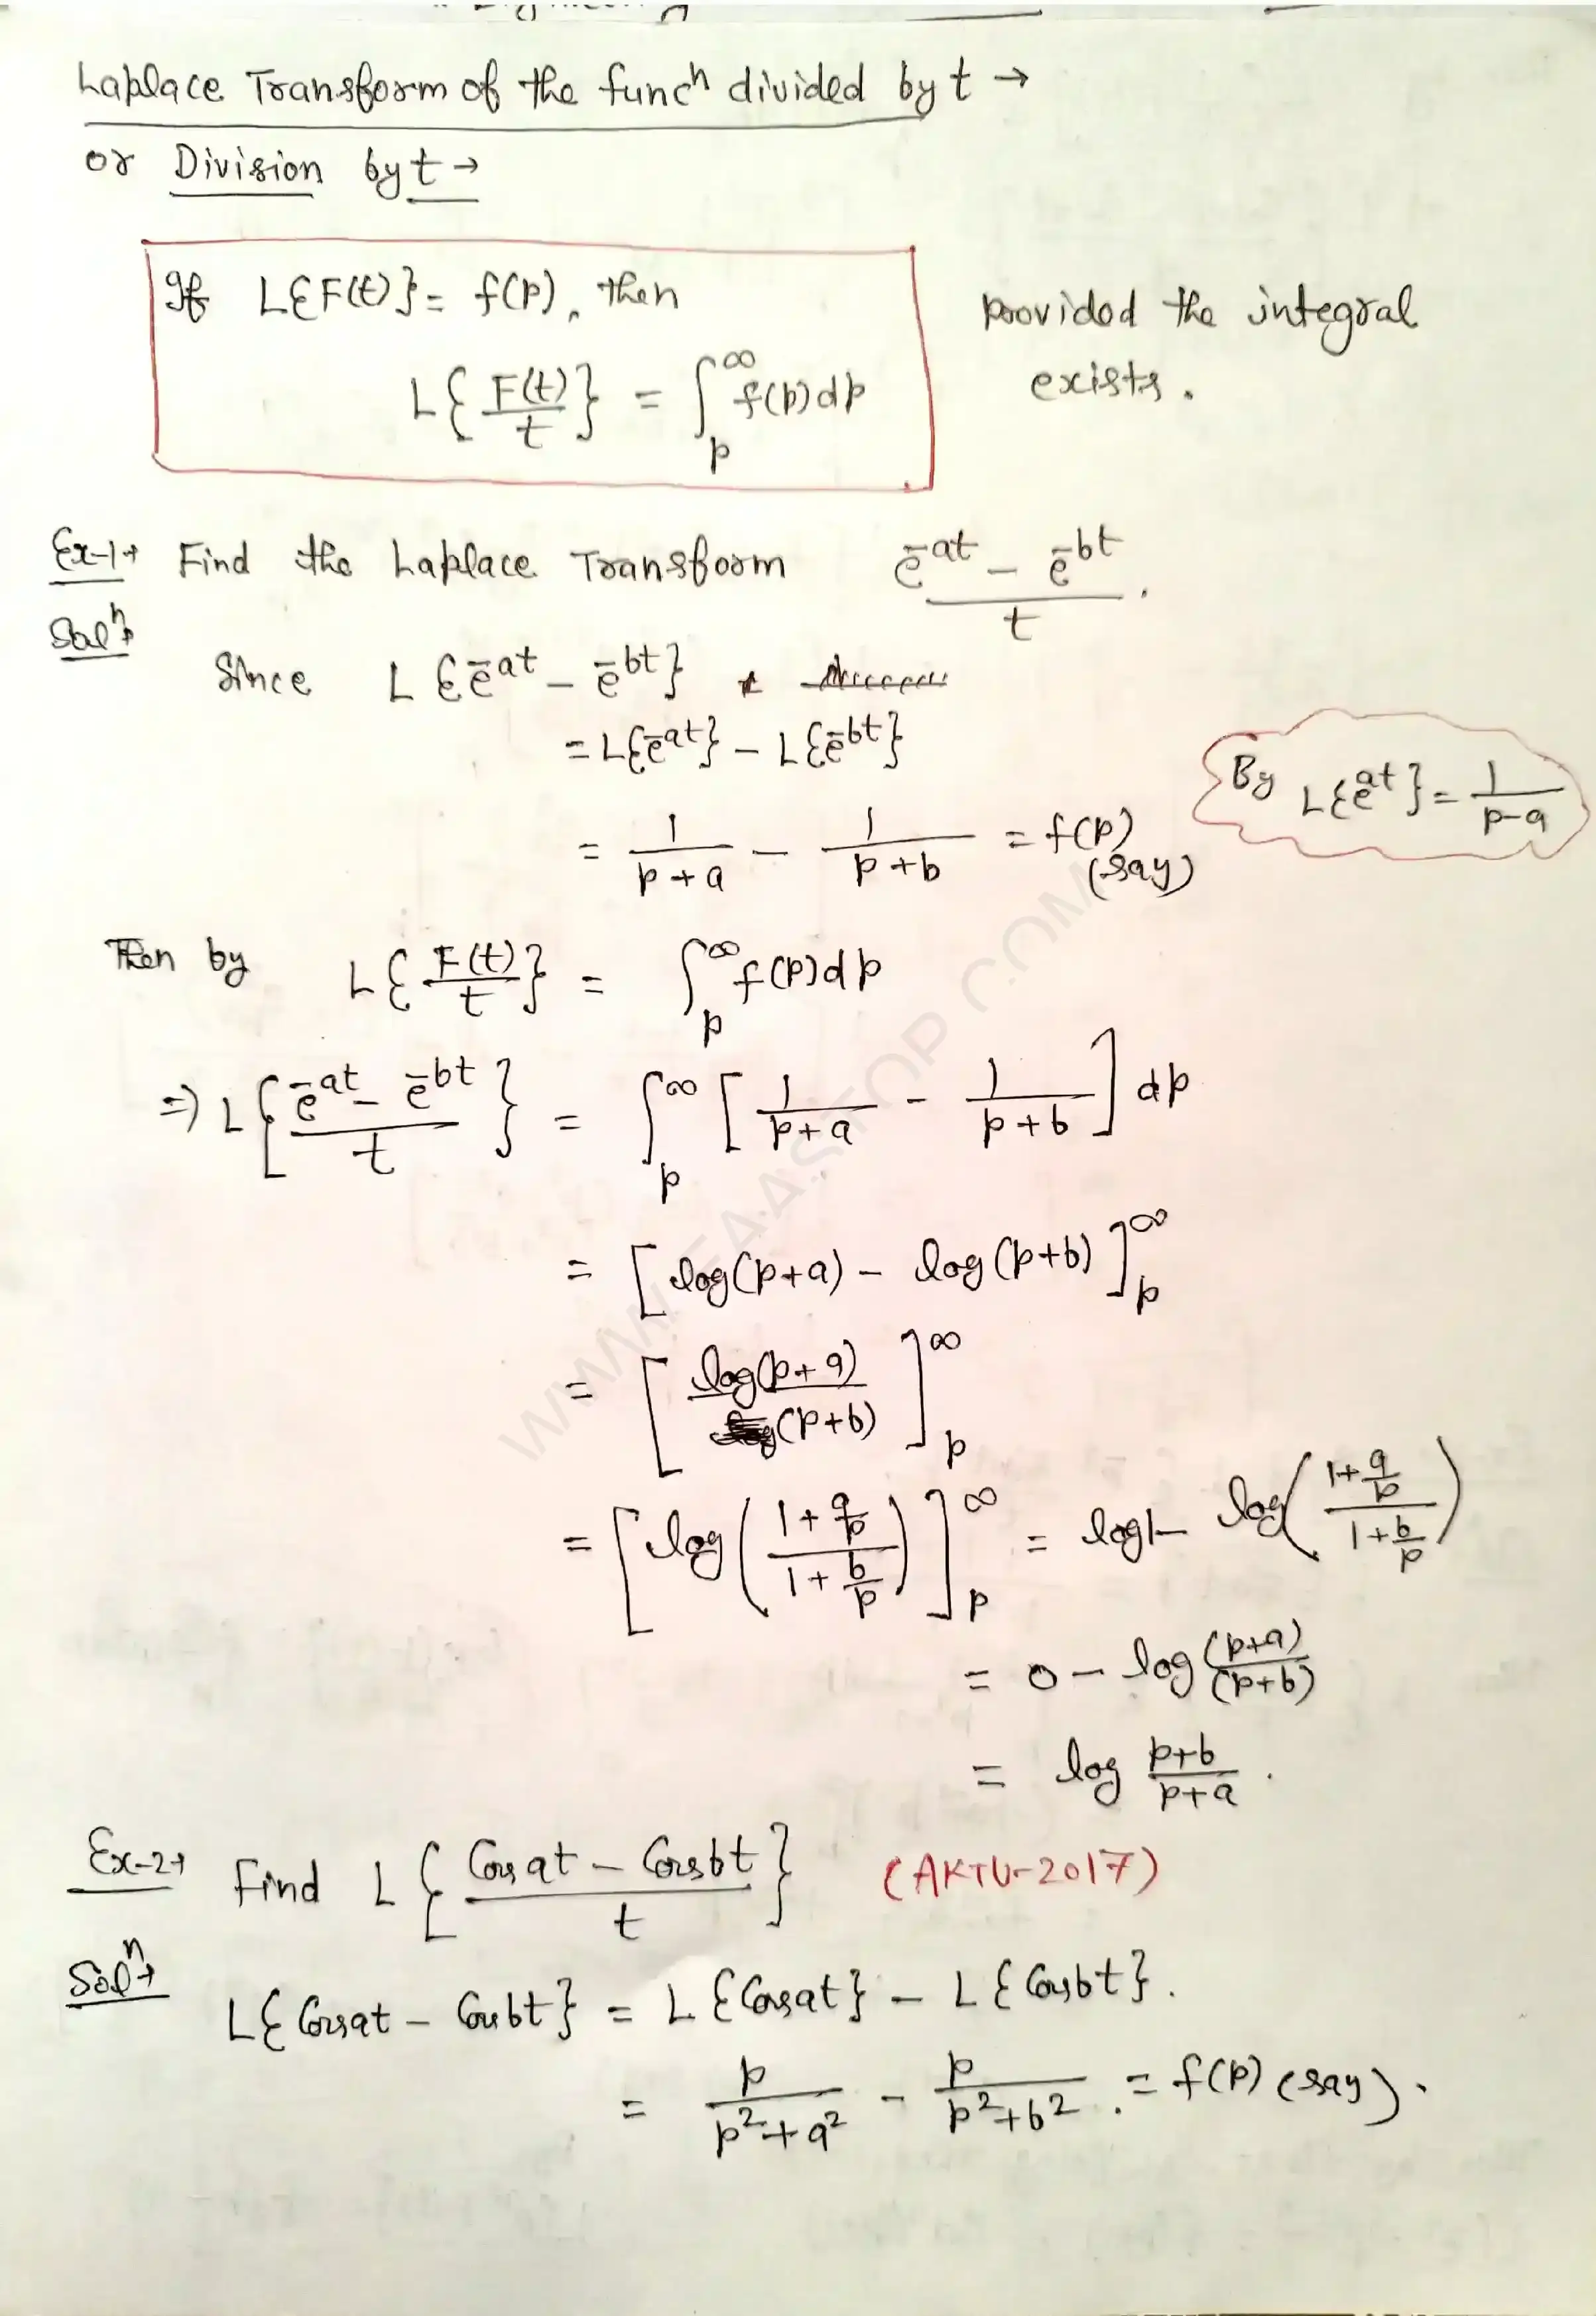 Laplace Transform of the funcⁿ divided by t →
or Division by t →
If L{F(t)} = f(p), then
provided the integral
exists.
L{F(t)/t} = ∫_p^∞ f(p)dp
Ex-1→ Find the Laplace Transform (e^-at - e^-bt)/t .
Solⁿ→
Since L{e^-at - e^-bt}
= L{e^-at} - L{e^-bt}
By L{e^at} = 1/(p-a)
= 1/(p+a) - 1/(p+b) = f(p)
(say)
Then by L{F(t)/t} = ∫_p^∞ f(p)dp
⇒ L{(e^-at - e^-bt)/t} = ∫_p^∞ [1/(p+a) - 1/(p+b)] dp
= [log(p+a) - log(p+b)]_p^∞
= [log(p+a)/(p+b)]_p^∞
= [log((1+a/p)/(1+b/p))]_p^∞ = log1 - log((1+a/p)/(1+b/p))
= 0 - log (p+a)/(p+b)
= log (p+b)/(p+a) .
Ex-2→ Find L{(Cosat - Cosbt)/t} (AKTU-2017)
Solⁿ→
L{Cosat - Cosbt} = L{Cosat} - L{Cosbt}.
= p/(p²+a²) - p/(p²+b²) . = f(p) (say).